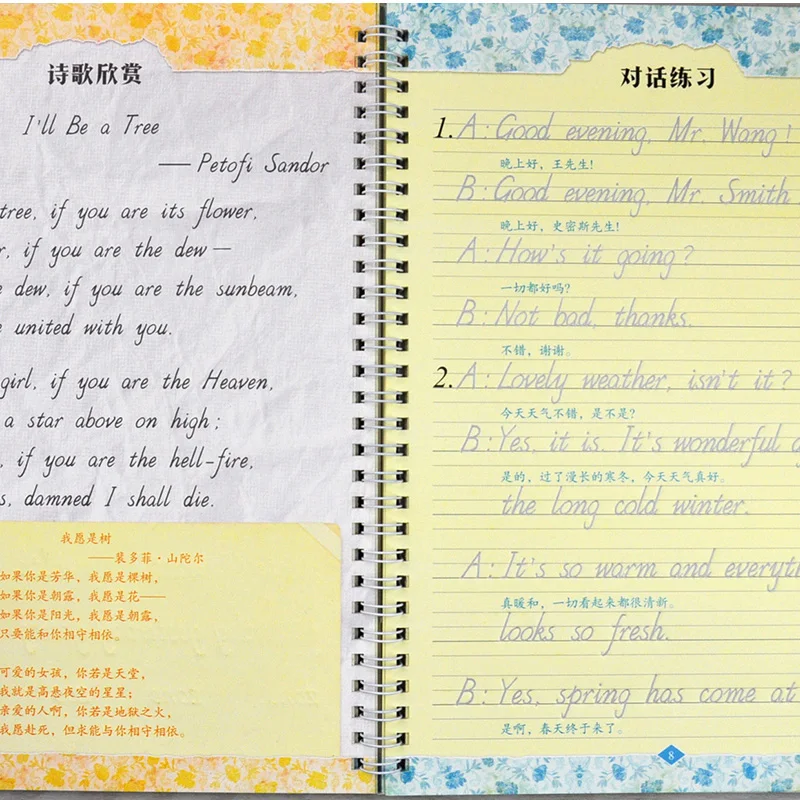 诗歌欣赏
I'll Be a Tree
— Petofi Sandor
tree, if you are its flower,
, if you are the dew —
dew, if you are the sunbeam,
united with you.
girl, if you are the Heaven,
a star above on high;
, if you are the hell-fire,
, damned I shall die.
我愿是树
——裴多菲·山陀尔
如果你是芳华，我愿是棵树，
如果你是朝露，我愿是花——
如果你是阳光，我愿是朝露，
只要能和你相守相依。
可爱的女孩，你若是天堂，
我就是高悬夜空的星星；
亲爱的人啊，你若是地狱之火，
我愿赴死，但求能与你相守相依。
对话练习
1. A: Good evening, Mr. Wang!
晚上好，王先生！
B: Good evening, Mr. Smith
晚上好，史密斯先生！
A: How's it going?
一切都好吗？
B: Not bad, thanks.
不错，谢谢。
2. A: Lovely weather, isn't it?
今天天气不错，是不是？
B: Yes, it is. It's wonderful
是的，过了漫长的寒冬，今天天气真好。
the long cold winter.
A: It's so warm and everyt
真暖和，一切看起来都很清新。
looks so fresh.
B: Yes, spring has come at
是啊，春天终于来了。
8